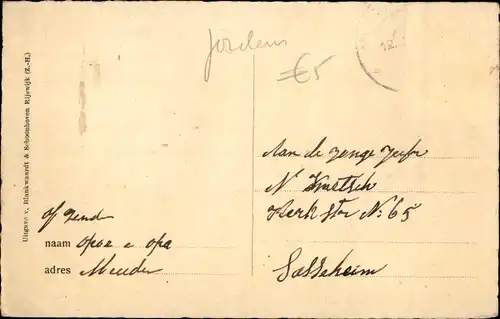 Jordens
€5
Uitgave v. Blankwaardt & Schoonhoven Rijswijk (Z.-H.)
Aan de Jonge Jufr
N
Kerkstr No 65
Sassheim
afzend
naam opoe e opa
adres